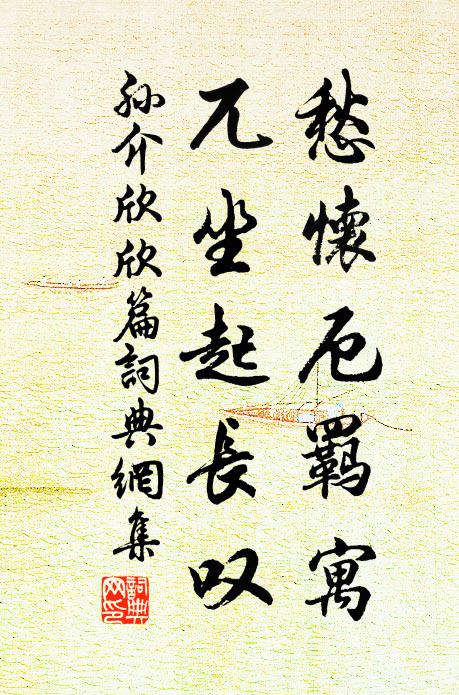 愁懷厄羈寓
兀坐起長叹
孙介欣欣篇詞典網集
詞典網印